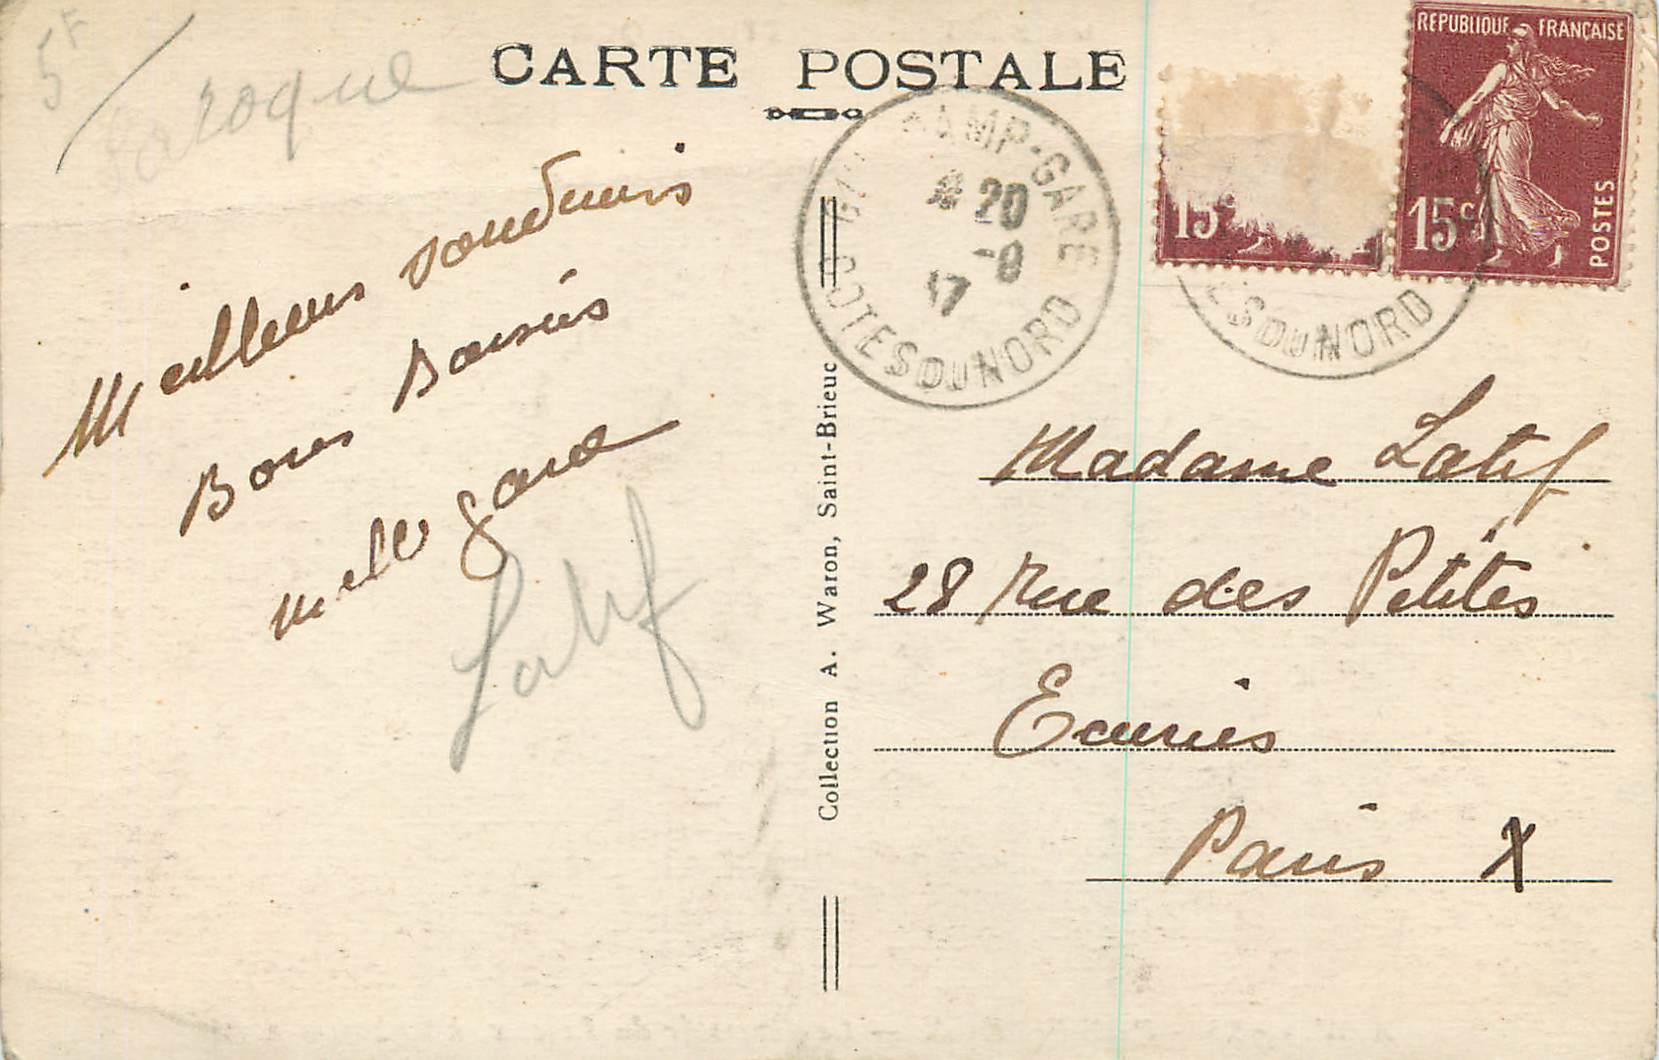 5F
Laroque
CARTE POSTALE
Meilleurs souvenirs
Bons Baisers
melle
Latif
Collection A. Waron, Saint-Brieuc
AMP-GARE
COTES DU NORD
20
-8
37
ES DU NORD
15c
REPUBLIQUE FRANÇAISE
15c
POSTES
Madame Latif
28 Rue des Petites
Ecuries
Paris X